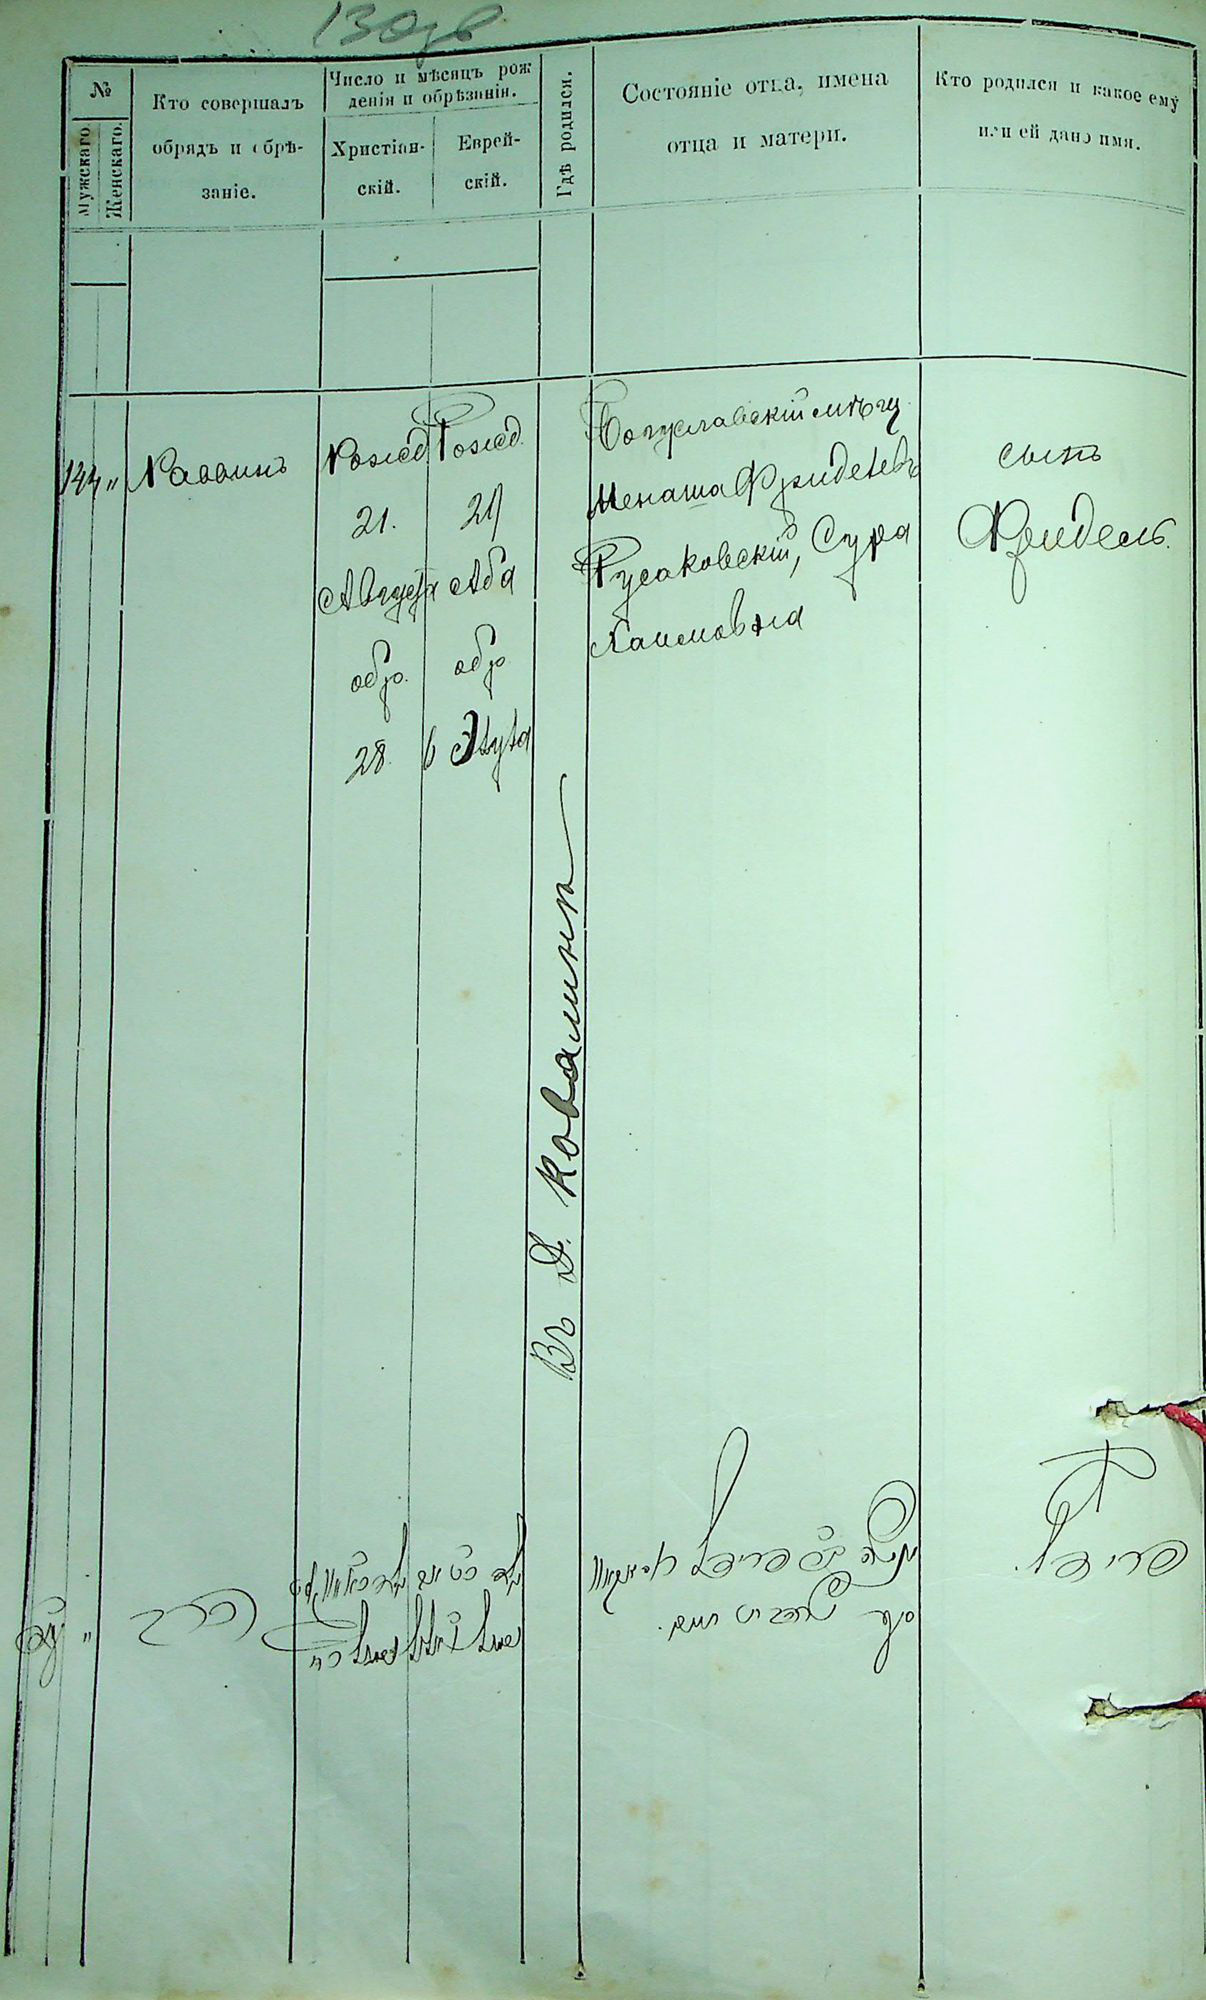 130 об
№
Мужскаго.
Женскаго.
Кто совершалъ
обрядъ и обрѣ-
заніе.
Число и мѣсяцъ рож
денія и обрѣзанія.
Христіан-
скій.
Еврей-
скій.
Гдѣ родился.
Состояніе отца, имена
отца и матери.
Кто родился и какое ему
или ей дано имя.
144 "
Раввинъ
Рожд
21.
Августа
обр.
28.
Рожд.
29
Аба
обр
6 Элула
Въ д. Ковалинъ
Богуславскій мѣщ.
Менаша Фриделевъ
Русаковскій, Сура
Хаимовна
сынъ
Фридель.
"
הרב
פרידל.